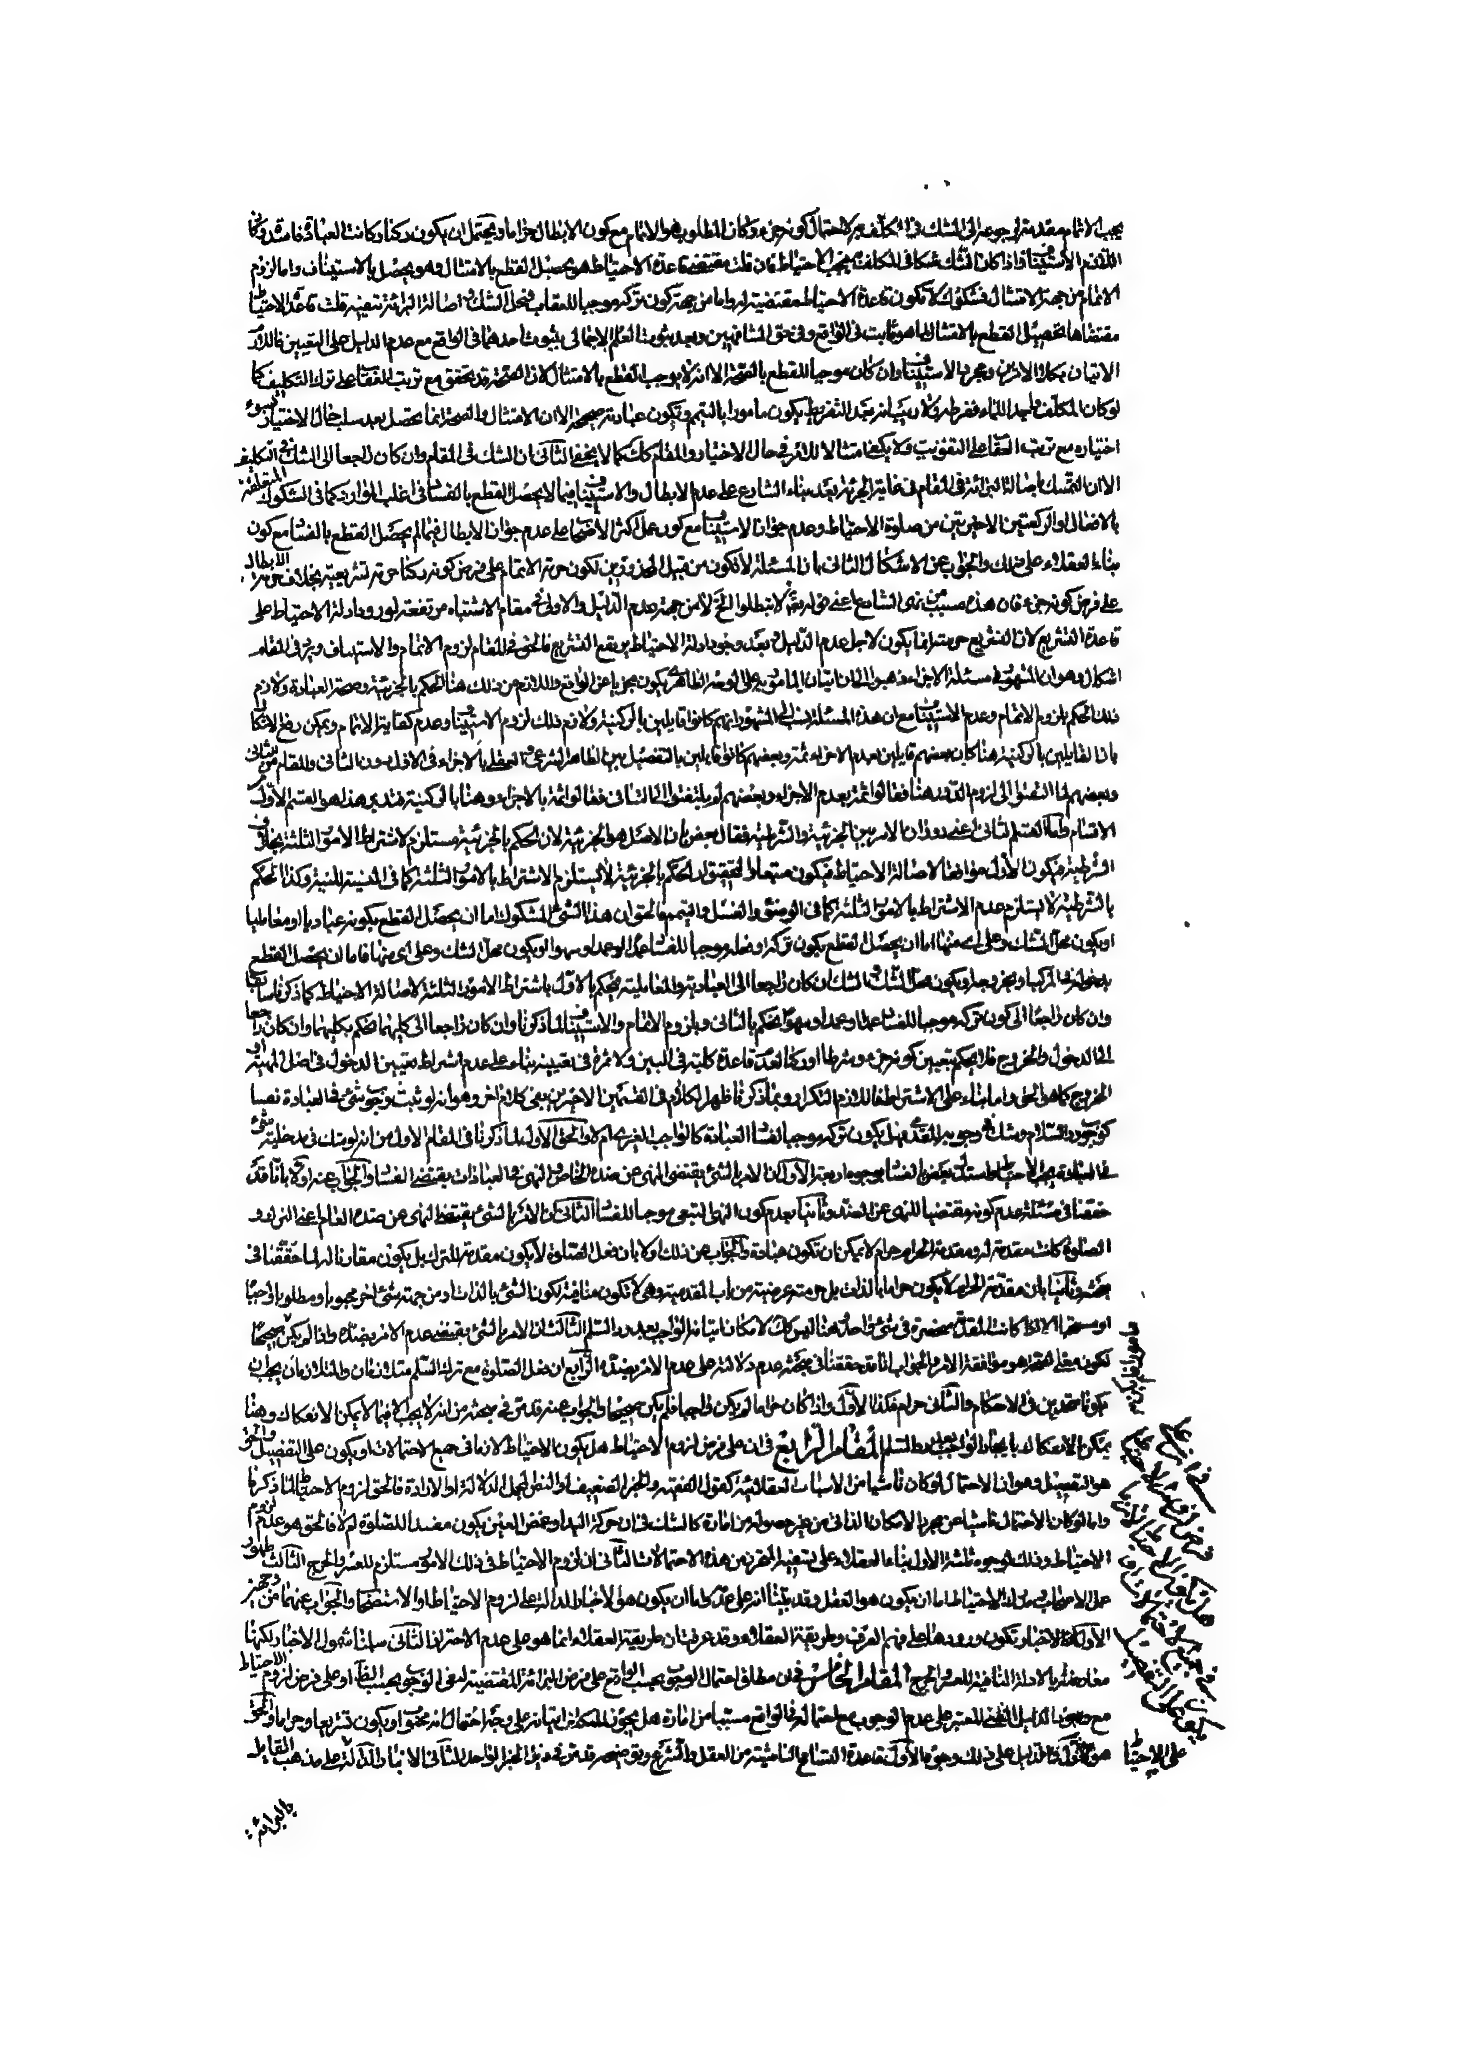 يجب الاتمام مقدمة لرجوعه الى الشك في المكلف به لاحتمال كونه جزء وكان المطلوب هو الاتمام مع كون الابطال حراما ويحتمل ان يكون ركنا وكانت العبادة فاسدة وكان
اللازم الاستيناف فاذا كان الشك شكا في المكلف به يجب الاحتياط فان قلت مقتضى قاعدة الاحتياط هو تحصيل القطع بالامتثال وهو يحصل بالاستيناف واما لزوم
الاتمام من جهة الامتثال فمشكوك لا تكون قاعدة الاحتياط مقتضية له واما من جهة كون تركه موجبا للعقاب فمحل الشك و اصالة البرائة تنفيه قلت قاعدة الاحتياط
مقتضاها تحصيل القطع بالامتثال لما هو ثابت في الواقع وفي حق المشافهين وبعد ثبوت العلم الاجمالي بثبوت احدهما في الواقع مع عدم الدليل على التعيين فاللازم
الاتيان بكلا الامرين ومجرد الاستيناف وان كان موجبا للقطع بالصحة الا انه لا يوجب القطع بالامتثال لان الصحة قد يتحقق مع ترتب العقاب على ترك التكليف كما
لو كان المكلف واجد الماء ففرط ولا ريب انه بعد التفريط يكون مامورا بالتيمم وتكون عبادته صحيحة الا ان الامتثال والصحة انما يحصل بعد سلب حال الاختيار بسوء
اختياره ومع ترتب العقاب على التفويت ولا يكفي امتثالا للامر في حال الاختيار والمقام كك كما لا يخفى الثاني ان الشك في المقام وان كان راجعا الى الشك في التكليف
الا ان التمسك باصالة البرائة في المقام في غاية الحزبة بعد بناء الشارع على عدم الابطال والاستيناف فيما لا يحصل القطع بالفساد في اغلب الموارد كما في الشكوك المتعلقة
بالافعال او الركعتين الاخيرتين من صلوة الاحتياط وعدم جواز الاستيناف مع كون عمل اكثر الاصحاب على عدم جواز الابطال فيما لم يحصل القطع بالفساد مع كون
بناء العقلاء على ذلك والجواب عن الاشكال الثاني بان المسئلة لا تكون من قبيل المحذورين لكون حرمة الاتمام على فرض كونه ركنا حرمة تشريعية بخلاف حرمة الابطال
على فرض كونه جزء فان هذه مسبب من نهى الشارع اعني قوله تعالى لا تبطلوا الخ لا من جهة عدم الدليل والاولى في مقام الاشتباه مرتفعة لورود ادلة الاحتياط على
قاعدة التشريع لان التشريع حرمته انما يكون لاجل عدم الدليل وبعد وجود ادلة الاحتياط يرتفع التشريع فالحق في المقام لزوم الاتمام والاستيناف ويرد في المقام
اشكال وهو ان المشهور في مسئلة الاجزاء ذهبوا الى ان اتيان المامور به على الوجه الظاهري يكون مجزيا عن الواقع واللازم من ذلك هنا الحكم بالجزئية وصحة العبادة ولازم
ذلك الحكم بلزوم الاتمام وعدم الاستيناف مع ان هذه المسئلة نسب الى المشهور انهم كانوا قايلين بالركنية ولازم ذلك لزوم الاستيناف وعدم كفاية الاتمام ويمكن رفع الاشكال
بان القايلين بالركنية هنا كان بعضهم قايلين بعدم الاجزاء ثمة وبعضهم كانوا قايلين بالتفصيل بين الظاهر الشرعي والعقلي بالاجزاء في الاول دون الثاني والمقام من الثاني
وبعضهم لما التفتوا الى لزوم الدور هنا فقالوا ثمة بعدم الاجزاء وبعضهم لم يلتفتوا الى التنافي فقالوا ثمة بالاجزاء وهنا بالركنية فتدبر هذا هو القسم الاول من
الاقسام واما القسم الثاني اعني دوران الامر بين الجزئية والشرطية فقال بعض بان الاصل هو الجزئية لان الحكم بالجزئية مستلزم لاشتراط الامور الثلثة بخلاف
الشرطية فيكون الاول موافقا لاصالة الاحتياط فيكون متبعا والتحقيق ان الحكم بالجزئية لا يستلزم الاشتراط بالامور الثلثة كما في النية وكذا الحكم
بالشرطية لا يستلزم عدم الاشتراط بالامور الثلثة كما في الوضوء والغسل والتيمم فالحق ان هذا الشئ المشكوك اما ان يحصل القطع بكونه عباديا او معامليا
او يكون محل الشك وعلى اي منهما اما ان يحصل القطع بكون تركه او فعله موجبا للفساد عمدا او عمدا وسهوا او يكون محل الشك وعلى اي منهما فاما ان يحصل القطع
بدخوله في المركب او بخروجه او يكون محل الشك والشك ان كان راجعا الى العبادية والمعاملية فيحكم بالاول باشتراط الامور الثلثة لاصالة الاحتياط كما ذكرنا سابقا
وان كان راجعا الى كون تركه موجبا للفساد عمدا او عمدا وسهوا فيحكم بالثاني ويلزوم الاتمام والاستيناف لما ذكرنا وان كان راجعا الى كليهما فيحكم بكليهما وان كان راجعا
الى الدخول والخروج فلا يحكم بتعيين كونه جزء او شرطا او ركنا لعدم قاعدة كلية في البين ولا ثمرة في تعيينه بناء على عدم اشتراط تعيين الدخول في اصل المهية او
الخروج كما هو الحق واما بناء على الاشتراط فاللازم التكرار وبما ذكرنا ظهر الكلام في القسمين الاخيرين بقي كلام اخر وهو انه لو ثبت وجوب شئ في العبادة نفسا
كوجوب رد السلام وشك في وجوبه المقدمي هل يكون تركه موجبا لفساد العبادة كالواجب الغيري ام لا والحق الاول لما ذكرنا في المقام الاول من انه لو شك في مدخلية شئ
في العبادة يجب الاحتياط استدل بعض بالفساد بوجوه اربعة الاول ان الامر بالشئ يقتضي النهى عن ضده الخاص والنهى في العبادات يقتضي الفساد والجواب عنه اولا بانا قد
حققنا في مسئلة عدم كونه مقتضيا للنهى عن الضد وثانيا بعدم كون النهى التبعي موجبا للفساد الثاني ان الامر بالشئ يقتضي النهى عن ضده العام اعني الترك و
الصلوة كانت مقدمة له ومقدمة الحرام حرام لا يمكن ان تكون عبادة والجواب عن ذلك اولا بان فعل الصلوة لا يكون مقدمة للترك بل يكون مقارنا له لما حققنا في
مبحثه وثانيا بان مقدمة الحرام لا يكون حراما بالذات بل حرمته عرضية من باب المقدمية وهي لا تكون منافية لكون الشئ بالذات او من جهة شئ اخر محبوبا ومطلوبا واجبا
او مستحبا الا اذا كانت المقدمة منحصرة في شئ واحد وهنا ليس كك لامكان اتيانه الواجب بعد رد السلم الثالث ان الامر بالشئ يقتضي عدم الامر بضده واذا لم يكن صحيحا
لكونه معنى الصحة هو موافقة الامر والجواب انا قد حققنا في مبحثه عدم دلالته على عدم الامر بضده الرابع ان فعل الصلوة مع ترك السلم متلازمان والمتلازمان يجب ان
يكونا متحدين في الاحكام فالثاني حرام فكذا الاول واذا كان حراما لم يكن واجبا فلم يكن صحيحا والجواب عنه قد مر في مبحثه من انه لا يجب الا فيما لا يمكن الانفكاك وهنا
يمكن الانفكاك بايجاد الواجب بعد رد السلم المقام الرابع في ان على فرض لزوم الاحتياط هل يكون الاحتياط لازما في جميع الاحتمالات او يكون على التفصيل والحق
هو التفصيل وهو ان الاحتمال لو كان ناشيا من الاسباب العقلائية كقول الفقيه والخبر الضعيف او النص المجمل الدلالة او الارادة فالحق لزوم الاحتياط لما ذكرنا
واما لو كان الاحتمال ناشيا عن مجرد الامكان الذاتي من غير حصوله من امارة كالشك في ان حركة اليد او غمض العين يكون مفسدا للصلوة ام لا فالحق هو عدم لزوم
الاحتياط وذلك لوجوه ثلثة الاول بناء العقلاء على سفه المحترز من هذه الاحتمالات الثاني ان لزوم الاحتياط في ذلك الامور مستلزم للعسر والحرج الثالث ظهور
عمل الاصحاب مدرك الاحتياط اما ان يكون هو العقل وقد بينا انه على عدمه واما ان يكون هو الاخبار الدالة على لزوم الاحتياط او الاستصحاب والجواب عنهما من وجهين
الاول ان الاخبار تكون ورودها على فهم العرف وطريقة العقلاء وقد عرفت ان طريقة العقلاء انما هو على عدم الاحتراز الثاني سلمنا شمول الاخبار لكنها
معارضة بالادلة النافية للعسر والحرج المقام الخامس في ان مطلق احتمال الوجوب بحسب الواقع على فرض البرائة المقتضية لنفي الوجوب بحسب الظاهر او على فرض لزوم الاحتياط
مع وجود الدليل الظني المعتبر على عدم الوجوب مع احتماله في الواقع مسببا من امارة هل يجوز للمكلف اتيانه على وجه احتمال انه محبوب او يكون تشريعا وحراما والحق
هو الاول والدليل على ذلك وجوه الاول قاعدة التسامح الناشئة من العقل والشرع وتوضيحه قد مر في حجية الخبر الواحد الثاني الاخبار الدالة على مذهب القائل
على الاحتياط
بالبرائة